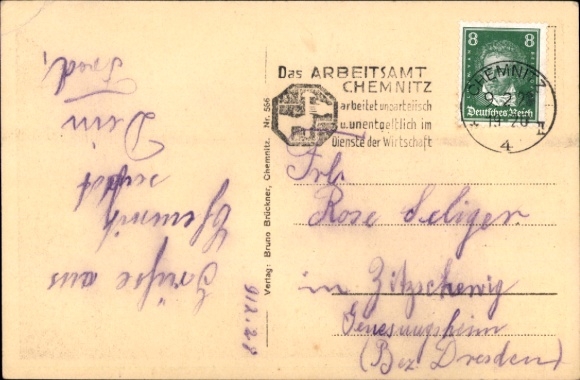 Grüße aus
Chemnitz
sendet
Dein
Fred,
9/2.28
Verlag: Bruno Brückner, Chemnitz. Nr. 586
Das ARBEITSAMT
CHEMNITZ
arbeitet unparteiisch
u. unentgeltlich im
Dienste der Wirtschaft
8 8
Deutsches Reich
CHEMNITZ
9.2.28
19-20
4
Frl.
Rose Seliger.
in Zitzschewig
Genesungsheim
(Bez. Dresden)